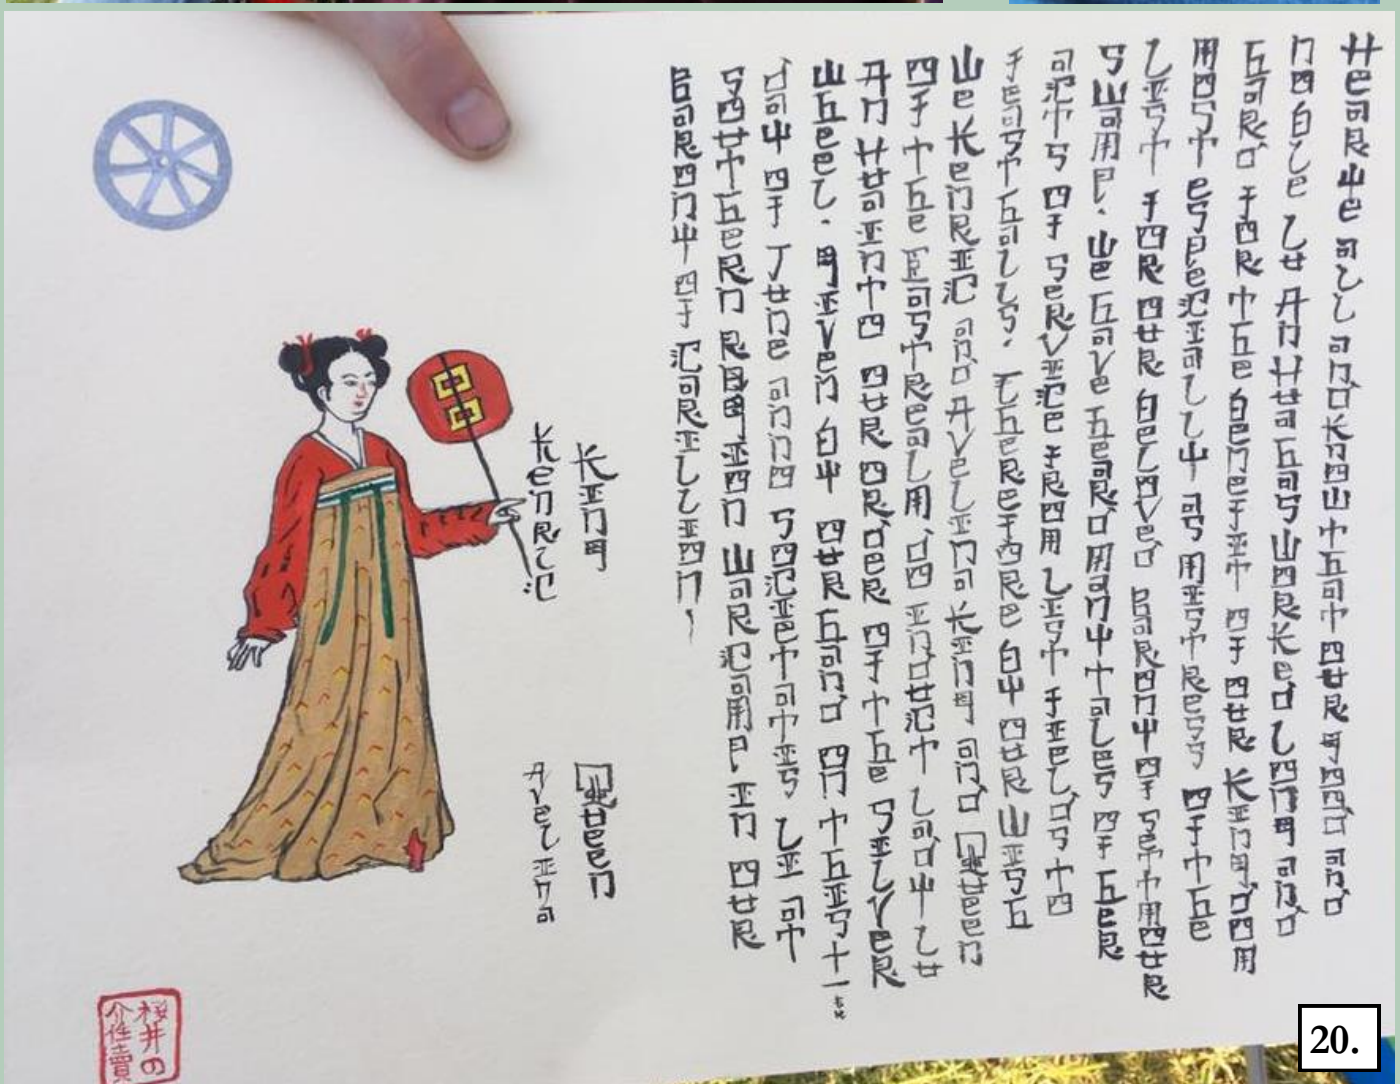 Hear ye all and know that our good and
noble Lu Anhua has worked long and
hard for the benefit of our Kingdom
most especially as mistress of the
list for our beloved Barony of Settmour
Swamp. We have heard many tales of her
acts of service from list fields to
feast halls. Therefore by our wish
We Kenric and Avelina King and Queen
of the Eastrealm, do induct Lady Lu
Anhua into our Order of the Silver
Wheel. Given by our hand on this 11th
day of June anno societatis LI at
Southern Region War Camp, in our
Barony of Carillion,
King
Kenric
Queen
Avelina
桜井の
介性賣
20.